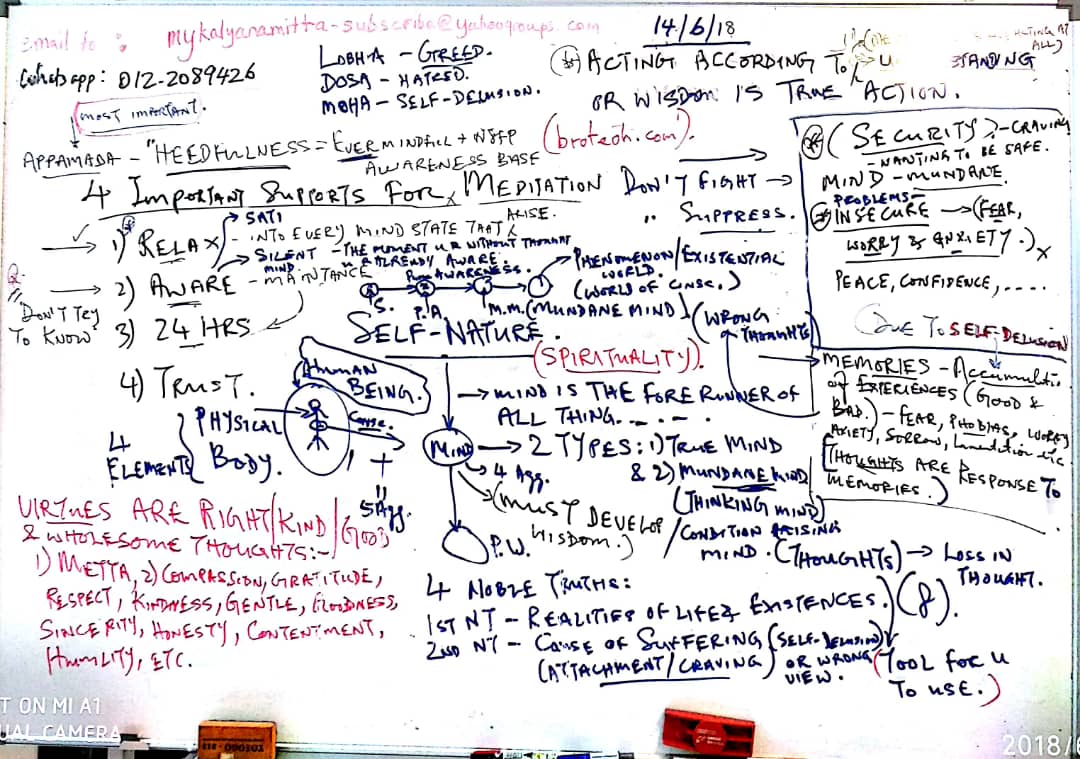 Email to : mykalyanamitta-subscribe@yahoogroups.com
Whatsapp: 012-2089426
14/6/18
LOBHA - GREED.
DOSA - HATRED.
MOHA - SELF-DELUSION.
ACTING ACCORDING TO
STANDING
OR WISDOM IS TRUE ACTION.
(broteoh.com).
MOST IMPORTANT.
APPAMADA - "HEEDFULNESS = EVER MINDFUL +
AWARENESS BASE
4 IMPORTANT SUPPORTS FOR MEDITATION
DON'T FIGHT →
" SUPPRESS.
1) RELAX
SATI
- INTO EVERY MIND STATE THAT ARISE.
SILENT MIND - THE MOMENT U R WITHOUT THOUGHT
U R ALREADY AWARE.
2) AWARE - MAINTANCE
Q:
DON'T TRY
TO KNOW
3) 24 HRS
4) TRUST.
PURE AWARENESS.
S.
P.A.
M.M. (MUNDANE MIND)
PHENOMENON/EXISTENTIAL
WORLD.
(WORLD OF CONSC.)
SELF-NATURE.
(SPIRITUALITY).
(WRONG
THOUGHTS)
(SECURITY?) - CRAVING
- WANTING TO BE SAFE.
MIND - MUNDANE
PROBLEMS-
INSECURE → (FEAR,
WORRY & ANXIETY.)
PEACE, CONFIDENCE, ....
DUE TO SELF-DELUSION
MEMORIES - Accumulatio
of EXPERIENCES (GOOD &
BAD.) - FEAR, PHOBIAS, WORRY
ANXIETY, SORROW, Lamentation etc.
[THOUGHTS ARE RESPONSE TO
MEMORIES.)
HUMAN
BEING.
4
ELEMENTS
PHYSICAL
BODY.
Consc.
+
5 Agg.
MIND
→ MIND IS THE FORERUNNER OF
ALL THING. . . . .
→ 2 TYPES: 1) TRUE MIND
& 2) MUNDANE MIND
(THINKING MIND)
/CONDITION ARISING
MIND. (THOUGHTS) → LOSS IN
THOUGHT.
4 Agg.
(MUST DEVELOP
WISDOM.)
P.W.
VIRTUES ARE RIGHT/KIND/GOOD
& WHOLESOME THOUGHTS:-
1) METTA, 2) COMPASSION, GRATITUDE,
RESPECT, KINDNESS, GENTLE, GOODNESS,
SINCERITY, HONESTY, CONTENTMENT,
HUMILITY, ETC.
4 NOBLE TRUTHS:
1ST NT - REALITIES OF LIFE & EXISTENCES.
2ND NT - CAUSE OF SUFFERING (SELF-DELUSION)
(ATTACHMENT/CRAVING) OR WRONG
VIEW.
(TOOL FOR U
TO USE.)
T ON MI A1
UAL CAMERA
2018/6